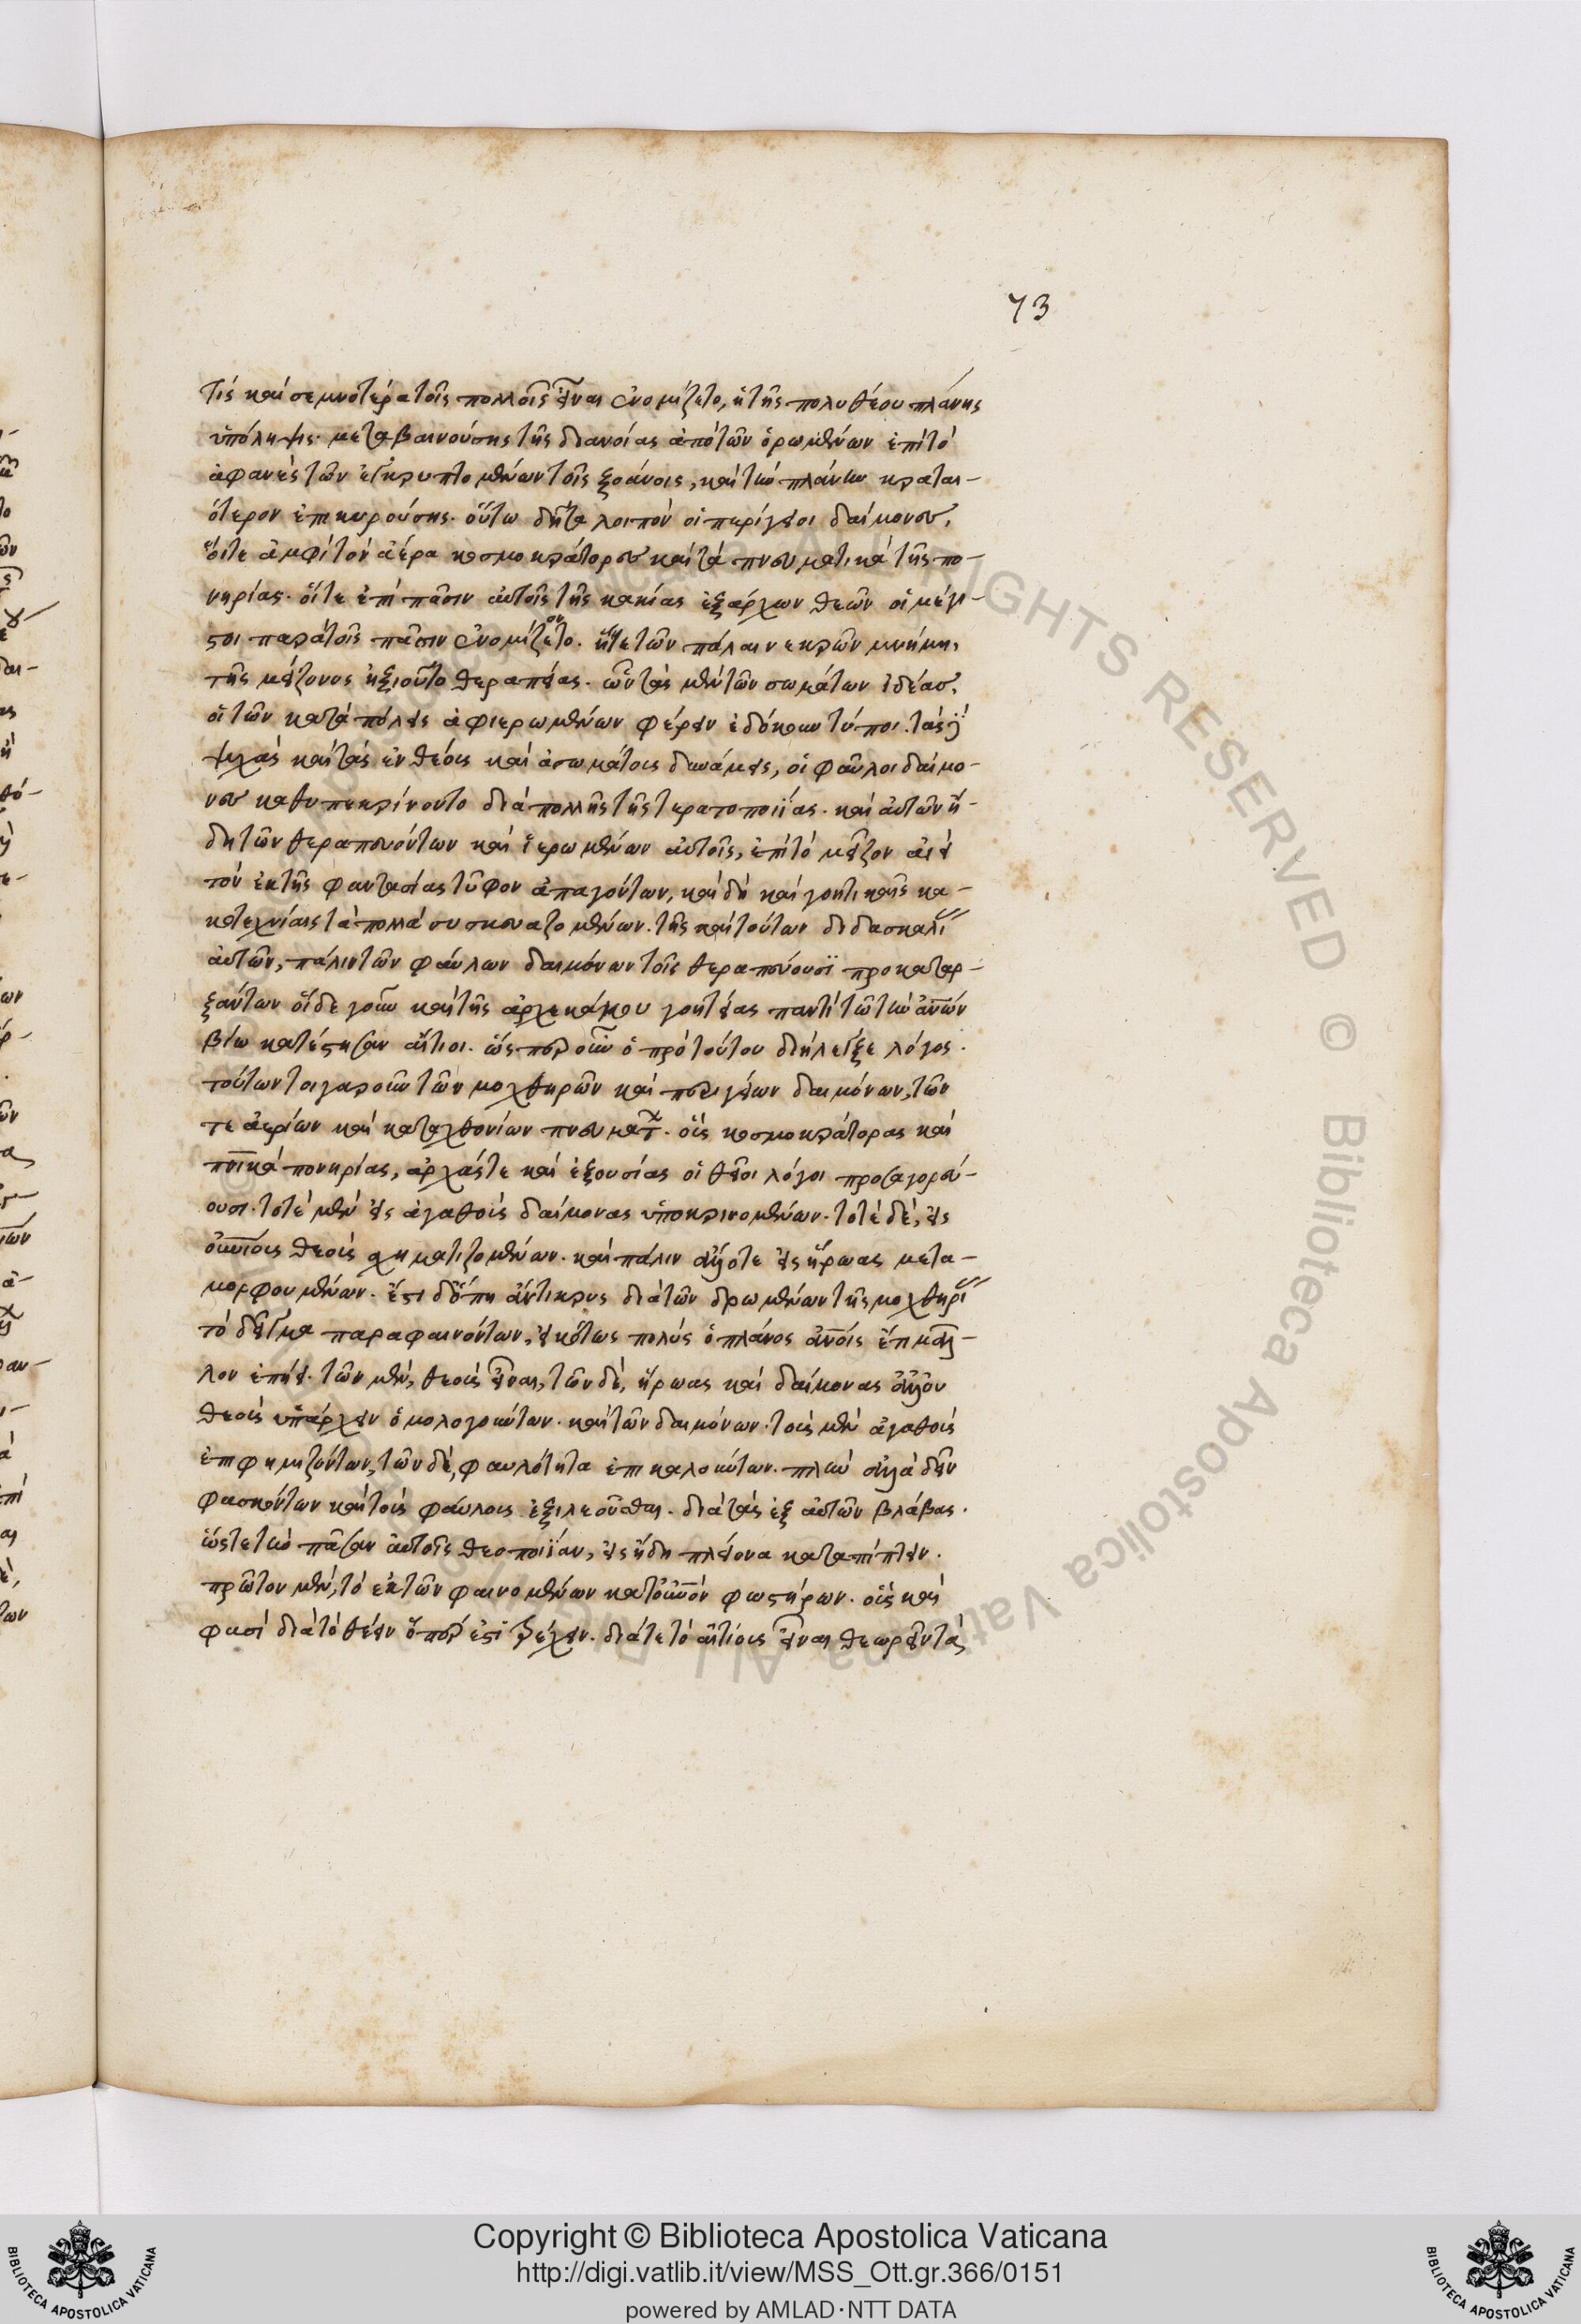 73
τίς καὶ σεμνοτέρα τοῖς πολλοῖς εἶναι ἐνομίζετο, ἡ τῆς πολυθέου πλάνης
ὑπόληψις· μεταβαινούσης τῆς διανοίας ἀπὸ τῶν ὁρωμένων ἐπὶ τὸ
ἀφανὲς τῶν ἐγκρυπτομένων τοῖς ξοάνοις, καὶ τὴν πλάνην κραται-
ότερον ἐπικυρούσης. οὕτω δῆτα λοιπὸν οἱ περίγειοι δαίμονες,
οἵτε ἀμφὶ τὸν ἀέρα κοσμοκράτορες καὶ τὰ πνευματικὰ τῆς πο-
νηρίας. οἵτε ἐπὶ πᾶσιν αὐτοῖς τῆς κακίας ἐξάρχων θεῶν οἱ μέγι-
στοι παρὰ τοῖς πᾶσιν ἐνομίζοντο. ἥτε τῶν πάλαι νεκρῶν μνήμη,
τῆς μείζονος ἠξιοῦτο θεραπείας. ὧν τὰς μὲν τῶν σωμάτων ἰδέας,
οἱ τῶν κατὰ πόλεις ἀφιερωμένων φέρειν ἐδόκουν τύποι. τὰς δὲ
ψυχὰς καὶ τὰς ἐνθέους καὶ ἀσωμάτους δυνάμεις, οἱ φαῦλοι δαίμο-
νες καθυπεκρίνοντο διὰ πολλῆς τῆς τερατοποιΐας. καὶ αὐτῶν ἤ-
δη τῶν θεραπευόντων καὶ ἱερωμένων αὐτοῖς, ἐπὶ τὸ μεῖζον ἀεὶ
τὸν ἐκ τῆς φαντασίας τῦφον ἀπαγόντων, καὶ δὴ καὶ γοητικαῖς κα-
κοτεχνίαις τὰ πολλὰ συσκευαζομένων. τῆς καὶ τούτων διδασκαλί
αὐτῶν, πάλιν τῶν φαύλων δαιμόνων τοῖς θεραπεύουσϊ προκαταρ-
ξάντων οἵδε γοῦν καὶ τῆς ἀρχεκάκου γοητείας παντὶ τῷ τῶν ἀνων
βίῳ κατέστησαν αἴτιοι. ὥσπερ οὖν ὁ πρὸ τούτου διήλεγξε λόγος.
τούτων τοιγαροῦν τῶν μοχθηρῶν καὶ περιγείων δαιμόνων, τῶν
τε ἀερίων καὶ καταχθονίων πνευματ. οὓς κοσμοκράτορας καὶ
πνικὰ πονηρίας, ἀρχάς τε καὶ ἐξουσίας οἱ θεῖοι λόγοι προσαγορεύ-
ουσι. τοτὲ μὲν εἰς ἀγαθοὺς δαίμονας ὑποκρινομένων. τοτὲ δὲ, εἰς
οὐνίους θεοὺς σχηματιζομένων. καὶ πάλιν ἄλλοτε εἰς ἥρωας μετα-
μορφουμένων. ἔστι δ' ὅπη ἄντικρυς διὰ τῶν δρωμένων τῆς μοχθηρί
τὸ δεῖγμα παραφαινόντων, εἰκότως πολὺς ὁ πλάνος ἀνοις ἔπι μᾶλ-
λον ἐπῄει. τῶν μὲν, θεοὺς εἶναι, τῶν δὲ, ἥρωας καὶ δαίμονας ἀλλ' οὐ
θεοὺς ὑπάρχειν ὁμολογούντων. καὶ τῶν δαιμόνων. τοὺς μὲν ἀγαθοὺς
ἐπιφημιζόντων, τῶν δὲ, φαυλότητα ἐπικαλούντων. πλὴν ἀλλὰ δεῖν
φασκόντων καὶ τοὺς φαύλους ἐξιλεοῦσθαι. διὰ τὰς ἐξ αὐτῶν βλάβας.
ὥστε τὴν πᾶσαν αὐτοῖς θεοποιΐαν, εἰς εἴδη πλείονα καταπίπτειν.
πρῶτον μὲν, τὸ ἐκ τῶν φαινομένων κατ' οὐνὸν φωστήρων. οὓς καὶ
φασὶ διὰ τὸ θέειν ὅπερ ἐστὶ τρέχειν. διά τε τὸ αἰτίους εἶναι θεωρεῖν τὰς
Copyright © Biblioteca Apostolica Vaticana
http://digi.vatlib.it/view/MSS_Ott.gr.366/0151
powered by AMLAD·NTT DATA